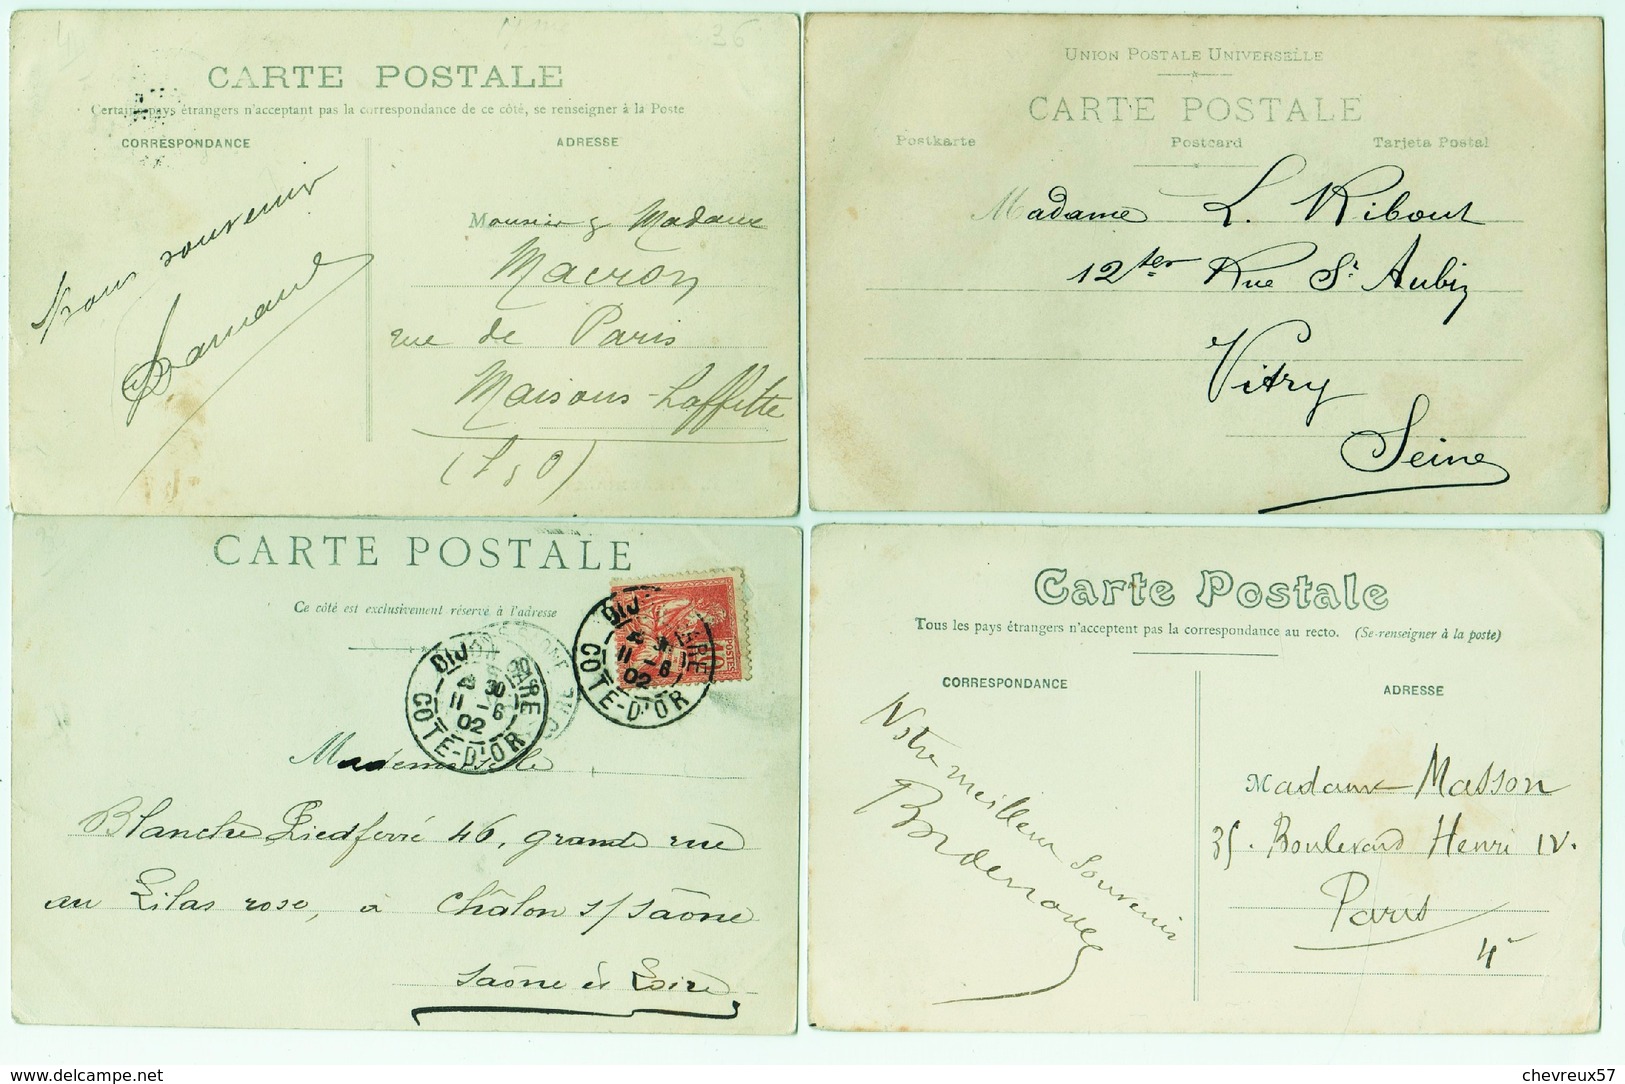 36
CARTE POSTALE
Certains pays étrangers n'acceptant pas la correspondance de ce côté, se renseigner à la Poste
CORRESPONDANCE
ADRESSE
souvenir
Monsieur & Madame
Macron
rue de Paris
Maisons-Laffitte
(S, O)
UNION POSTALE UNIVERSELLE
CARTE POSTALE
Postkarte Postcard Tarjeta Postal
Madame L. Ribout
12 ter Rue St Aubin
Vitry
Seine
CARTE POSTALE
Ce côté est exclusivement réservé à l'adresse
DIJON GARE
30
11 - 6
02
COTE-D'OR
DIJ GARE
11 - 6
02
COTE-D'OR
POSTES
Mademoiselle
Blanche Piedferré 46, grande rue
au Lilas rose, à Châlon s/ Saône
Saône et Loire
Carte Postale
Tous les pays étrangers n'acceptent pas la correspondance au recto. (Se renseigner à la poste)
CORRESPONDANCE
ADRESSE
Notre meilleur Souvenir
Madame Masson
35. Boulevard Henri IV.
Paris
4e
www.delcampe.net
chevreux57